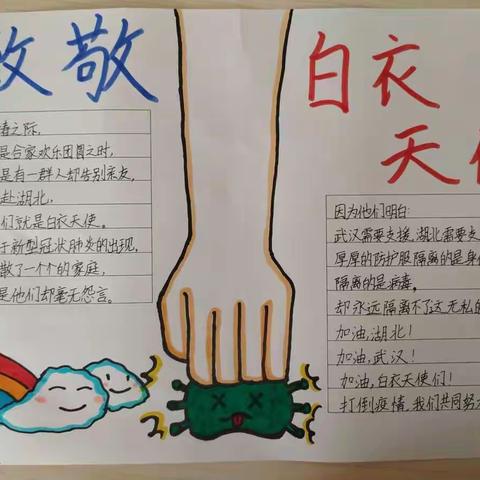 致敬
白衣
天使
春之际，
是合家欢乐团圆之时，
是有一群人却告别亲友，
赴湖北，
们就是白衣天使。
于新型冠状肺炎的出现，
散了一个个的家庭，
是他们却毫无怨言。
因为他们明白：
武汉需要支援，湖北需要支
厚厚的防护服隔离的是身体
隔离的是病毒。
却永远隔离不了这无私的
加油，湖北！
加油，武汉！
加油，白衣天使们！
打倒疫情，我们共同努力